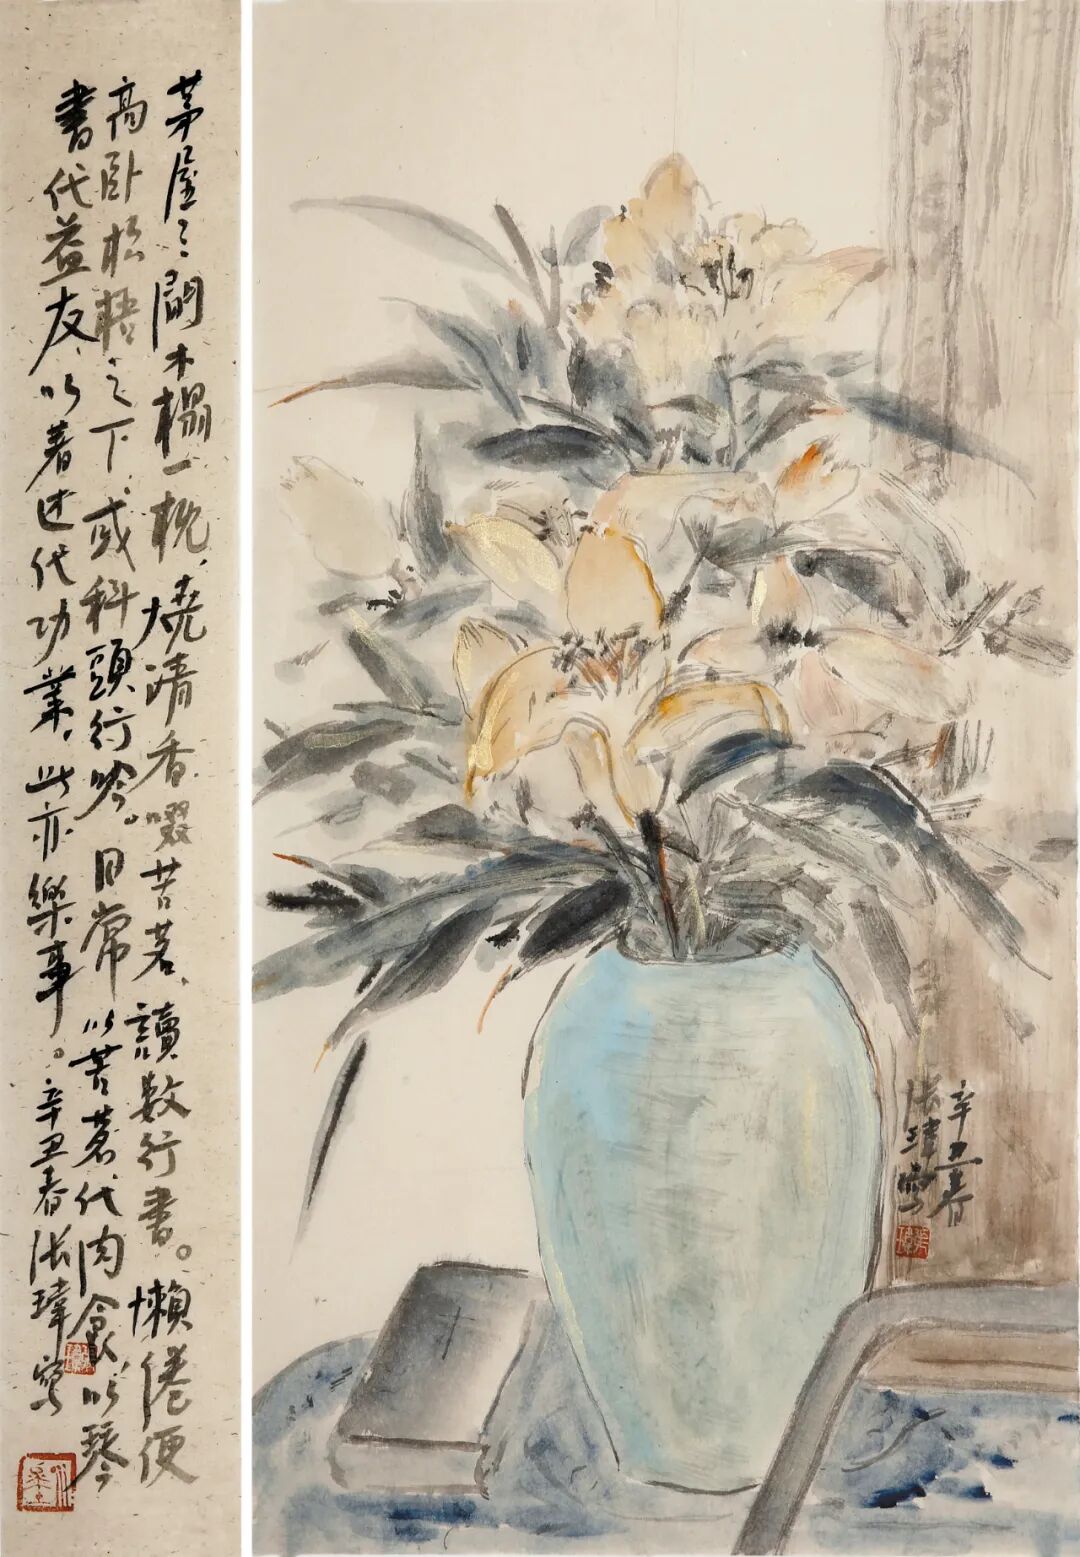 茅屋三間木榻一枕燒清香啜苦茗讀數行書。懶倦便
高卧松梧之下或科頭行吟。日常以苦茗代肉食以琴
書代益友以著述代功業此亦樂事。辛丑春張瑋寫
辛丑春
張瑋寫